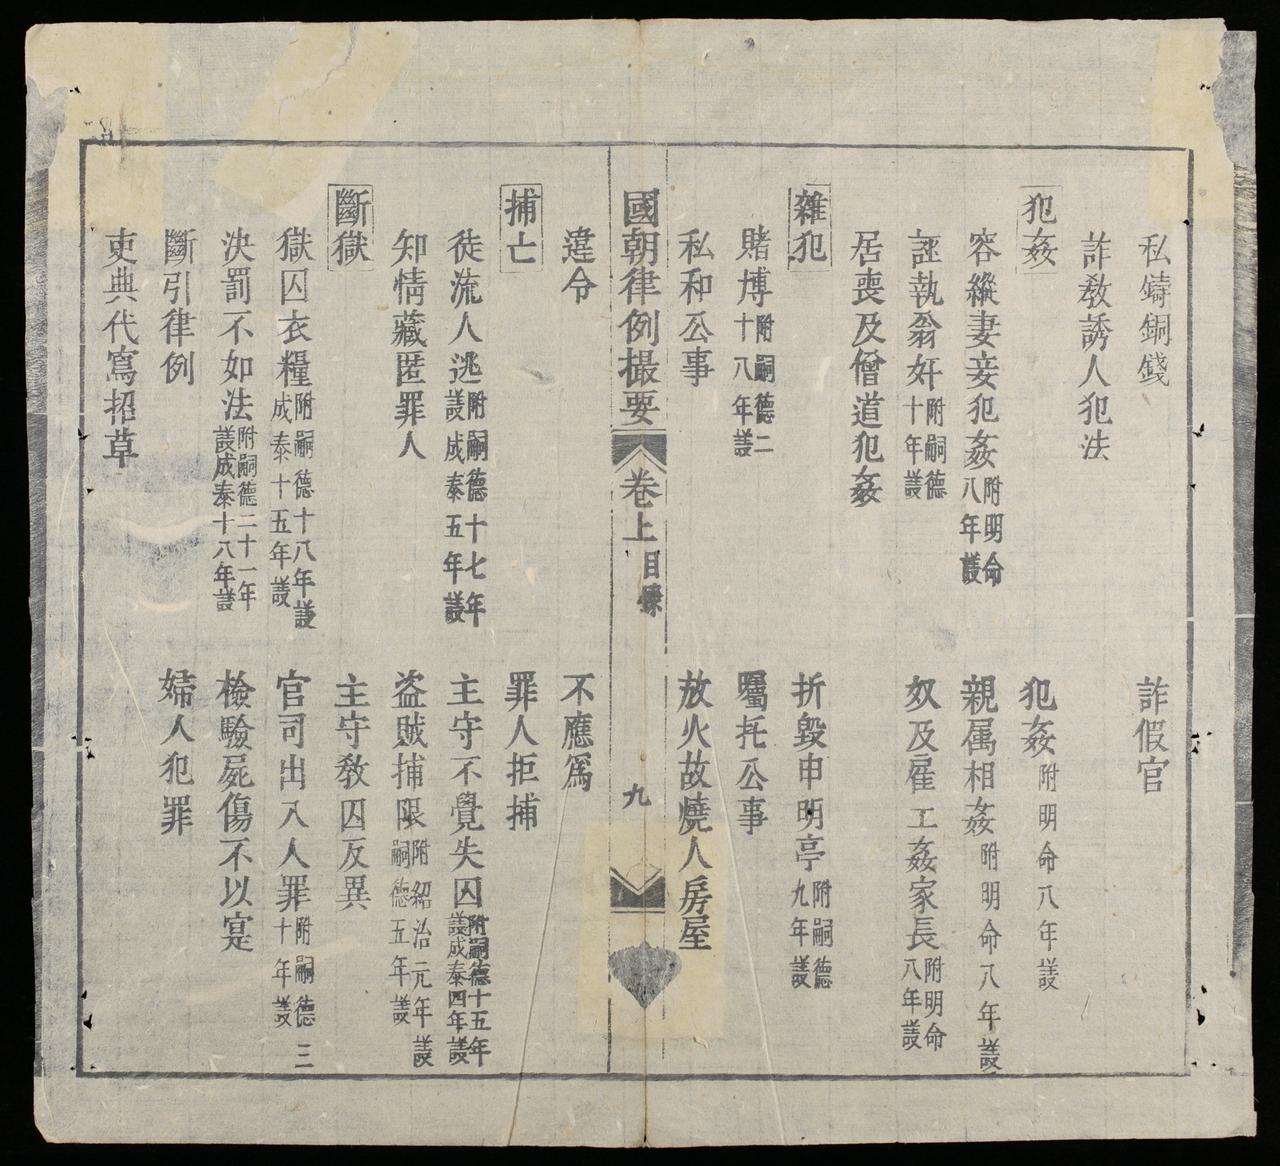 私鑄銅錢　詐假官
詐教誘人犯法
犯姦　犯姦附明命八年議
容縱妻妾犯姦附明命八年議　親属相姦附明命八年議
誣執翁奸附嗣德十年議　奴及雇工姦家長附明命八年議
居喪及僧道犯姦
雜犯　折毀申明亭附嗣德九年議
賭博附嗣德二十八年議　囑托公事
私和公事　放火故燒人房屋
國朝律例撮要　卷上　目錄　九
違令　不應爲
捕亡　罪人拒捕
徒流人逃附嗣德十七年議成泰五年議　主守不覺失囚附嗣德十五年議成泰四年議
知情藏匿罪人　盗賊捕限附紹治元年議嗣德五年議
斷獄　主守教囚反異
獄囚衣糧附嗣德十八年議成泰十五年議　官司出入人罪附嗣德三十年議
決罰不如法附嗣德二十一年議成泰十八年議　檢驗屍傷不以寔
斷引律例　婦人犯罪
吏典代寫招草